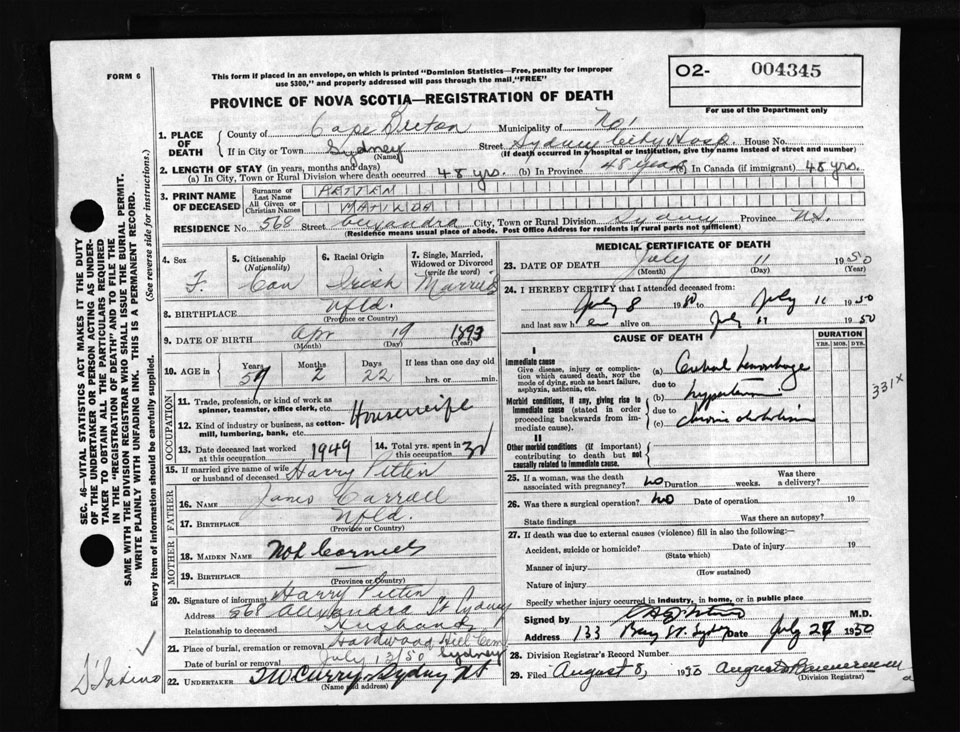 FORM 6
This form if placed in an envelope, on which is printed "Dominion Statistics—Free, penalty for improper
use $300," and properly addressed will pass through the mail, "FREE"
O2- 004345
For use of the Department only
PROVINCE OF NOVA SCOTIA—REGISTRATION OF DEATH
1. PLACE OF DEATH
County of Cape Breton Municipality of
If in City or Town Sydney Street Sydney City Hosp. House No.
(Name) (If death occurred in a hospital or institution, give the name instead of street and number)
2. LENGTH OF STAY (in years, months and days)
(a) In City, Town or Rural Division where death occurred 48 yrs. (b) In Province 48 years (c) In Canada (if immigrant) 48 yrs.
3. PRINT NAME OF DECEASED
Surname or Last Name PETTEN
All Given or Christian Names MATILDA
RESIDENCE No. 568 Street Alexandra City, Town or Rural Division Sydney Province N.S.
(Residence means usual place of abode. Post Office Address for residents in rural parts not sufficient)
4. Sex F.
5. Citizenship (Nationality) Can
6. Racial Origin Irish
7. Single, Married, Widowed or Divorced (write the word) Married
8. BIRTHPLACE Nfld.
(Province or Country)
9. DATE OF BIRTH Apr 19 1893
(Month) (Day) (Year)
10. AGE in Years 57 Months 2 Days 22 If less than one day old
hrs. or min.
OCCUPATION
11. Trade, profession, or kind of work as spinner, teamster, office clerk, etc. Housewife
12. Kind of industry or business, as cotton-mill, lumbering, bank, etc.
13. Date deceased last worked at this occupation 1949
14. Total yrs. spent in this occupation
15. If married give name of wife or husband of deceased Harry Petten
FATHER
16. NAME James Carroll
17. BIRTHPLACE Nfld.
(Province or Country)
MOTHER
18. MAIDEN NAME Not
19. BIRTHPLACE
(Province or Country)
20. Signature of informant Harry Petten
Address 568 Alexandra St Sydney
Relationship to deceased Husband
21. Place of burial, cremation or removal Hardwood Hill Cem Sydney
Date of burial or removal July 13/50
22. UNDERTAKER T W Curry Sydney NS
(Name and address)
MEDICAL CERTIFICATE OF DEATH
23. DATE OF DEATH July 11 1950
(Month) (Day) (Year)
24. I HEREBY CERTIFY that I attended deceased from
July 8 1950 to July 11 1950
and last saw h er alive on July 11 1950
CAUSE OF DEATH
DURATION
YRS. MOS. DYS.
I
Immediate cause
Give disease, injury or complication which caused death, not the mode of dying, such as heart failure, asphyxia, asthenia, etc.
(a) Cerebral hemorrhage
due to
Morbid conditions, if any, giving rise to immediate cause (stated in order proceeding backwards from immediate cause).
(b) hypertension
due to
(c) chronic
331X
II
Other morbid conditions (if important) contributing to death but not causally related to immediate cause.
25. If a woman, was the death associated with pregnancy? no Duration weeks. Was there a delivery?
26. Was there a surgical operation? no Date of operation 19
State findings Was there an autopsy?
27. If death was due to external causes (violence) fill in also the following:—
Accident, suicide or homicide? Date of injury 19
(State which)
Manner of injury
(How sustained)
Nature of injury
Specify whether injury occurred in industry, in home, or in public place
Signed by M.D.
Address 133 St. Sydney Date July 1950
28. Division Registrar's Record Number
29. Filed August 8, 1950
(Division Registrar)
SEC. 46—VITAL STATISTICS ACT MAKES IT THE DUTY
OF THE UNDERTAKER OR PERSON ACTING AS UNDER-
TAKER TO OBTAIN ALL THE PARTICULARS REQUIRED
IN THE "REGISTRATION OF DEATH" AND TO FILE THE
SAME WITH THE DIVISION REGISTRAR WHO SHALL ISSUE THE BURIAL PERMIT.
WRITE PLAINLY WITH UNFADING INK. THIS IS A PERMANENT RECORD.
Every item of information should be carefully supplied. (See reverse side for instructions.)